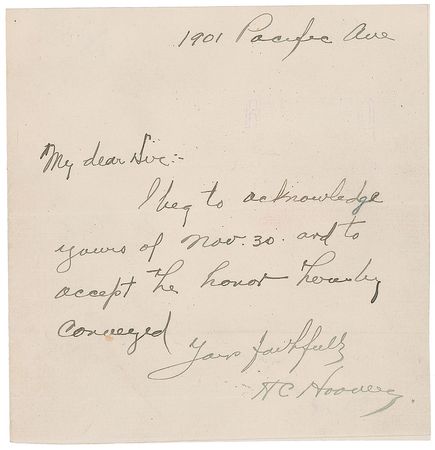 1901 Pacific Ave
My dear Sir:-
I beg to acknowledge
yours of Nov. 30. and to
accept the honor thereby
conveyed
Yours faithfully
H C Hoover